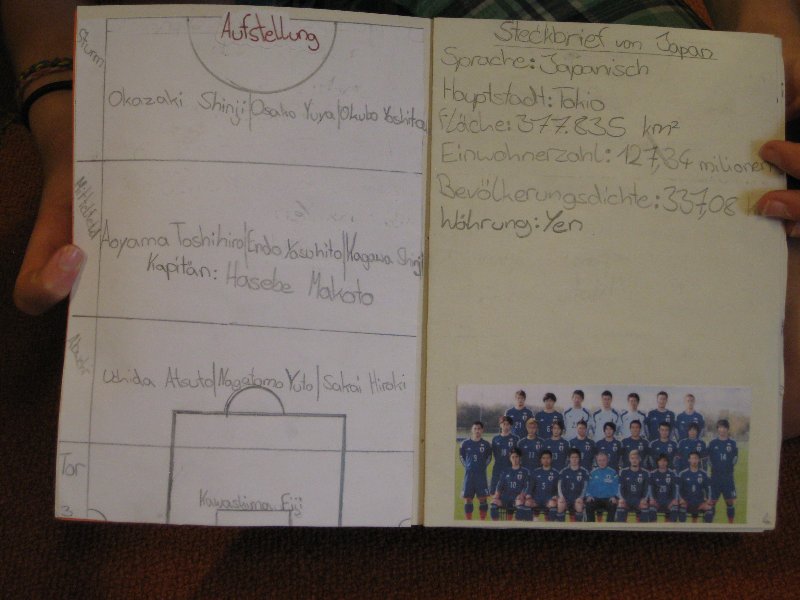 Aufstellung
Sturm
Okazaki Shinji/Osako Yuya/Okubo Yoshito
Mittelfeld
Aoyama Toshihiro/Endo Yasuhito/Kagawa Shinji
Kapitän: Hasebe Makoto
Uchida Atsuto/Nagatomo Yuto/Sakai Hiroki
Tor
Kawashima Eiji
3
Steckbrief von Japan
Sprache: Japanisch
Hauptstadt: Tokio
Fläche: 377.835 km²
Einwohnerzahl: 127,34 milionen
Bevölkerungsdichte: 337,08
Währung: Yen